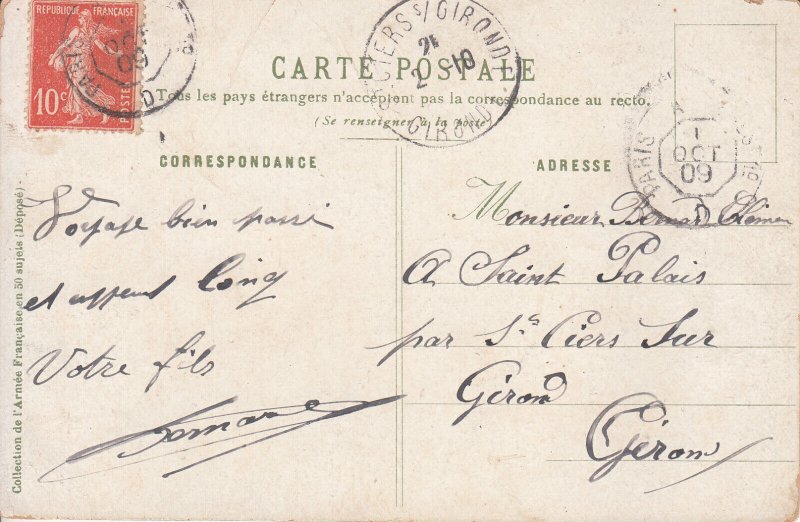 REPUBLIQUE FRANÇAISE
10c POSTES
PARIS OCT 09 D
ST CIERS S/ GIRONDE 2 -10 GIRONDE
PARIS 1 OCT 09 D
CARTE POSTALE
Tous les pays étrangers n'acceptent pas la correspondance au recto.
(Se renseigner à la poste)
CORRESPONDANCE
Voyage bien passé
et cinq
Votre fils
Bernard
ADRESSE
Monsieur Bernard
A Saint Palais
par St Ciers Sur
Girond
Girond
Collection de l'Armée Française en 50 sujets (Déposé)